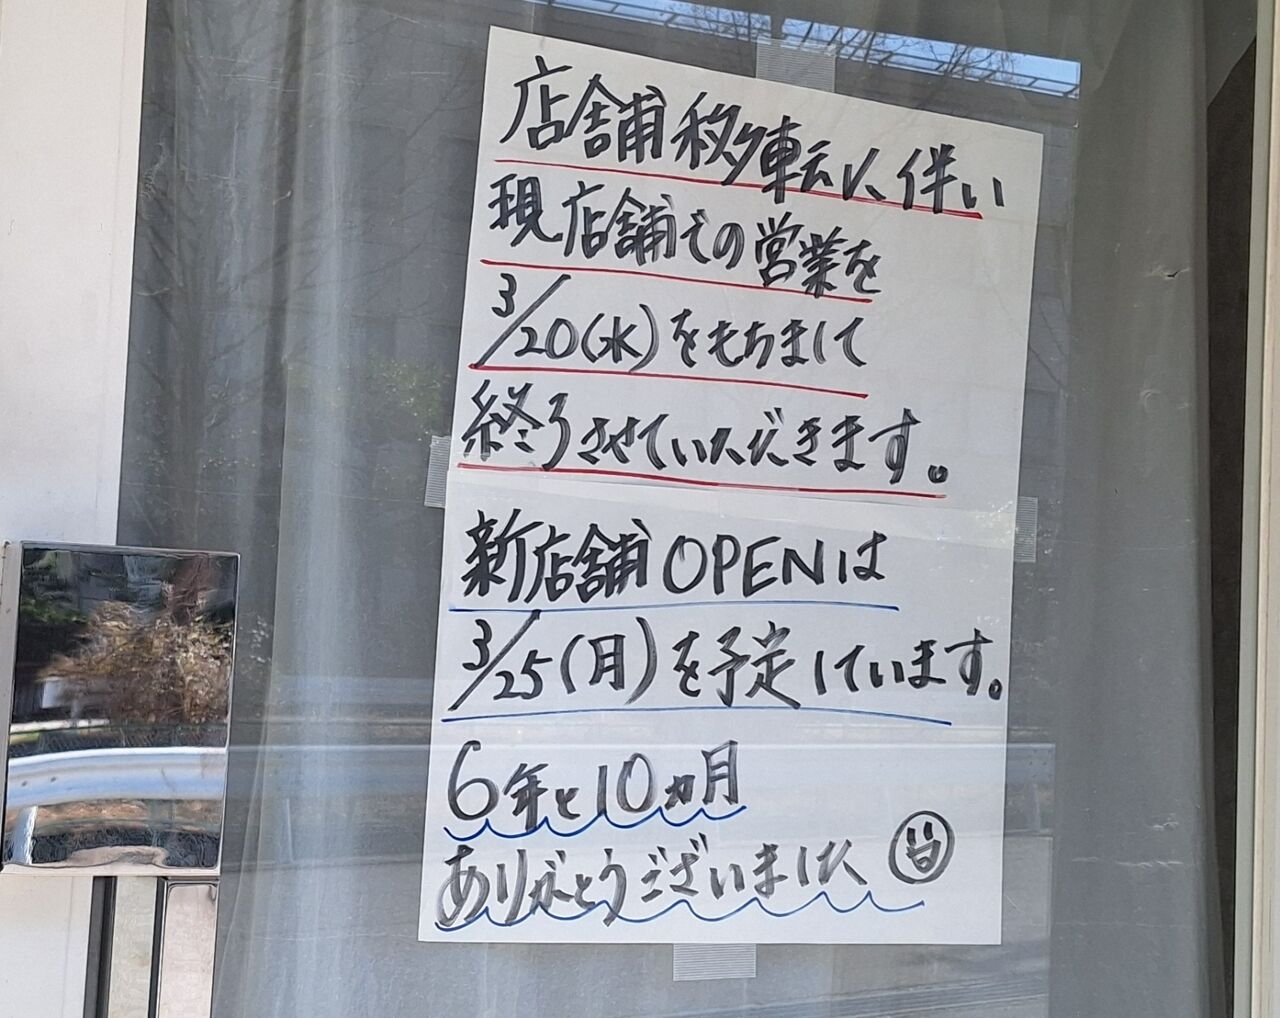 店舗移転に伴い
現店舗での営業を
3/20(水)をもちまして
終了させていただきます。
新店舗OPENは
3/25(月)を予定しています。
6年と10ヵ月
ありがとうございました